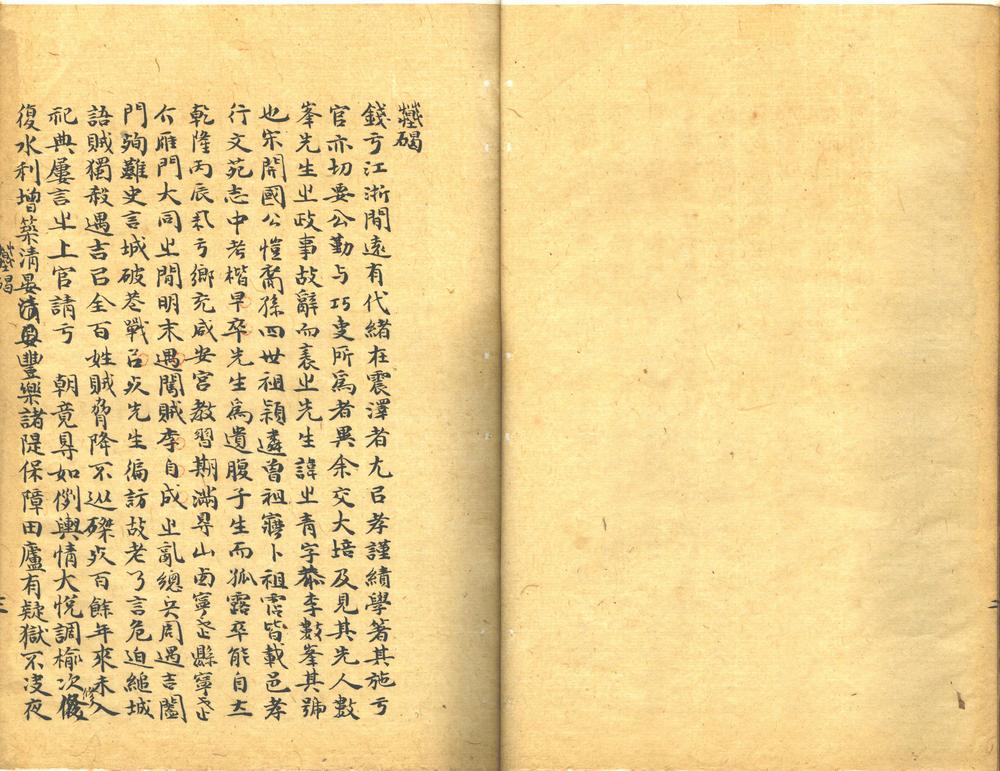 墓碣
錢亏江浙閒遠有代緒在震澤者尤㠯孝謹績學著其施亏
官亦切要公勤与巧吏所爲者異余交大培及見其先人數
峯先生㞢政事故辭而表㞢先生諱㞢青字恭李數峯其號
也宋開國公愷裔孫四世祖穎遴曾祖寤卜祖霑皆載邑孝
行文苑志中考楷早卒先生爲遺腹子生而孤露卒能自立
乾隆丙辰亏鄉充咸安宮教習期滿㝵山西寧武縣寧武
介雁門大同㞢閒明末遇闖賊李自成㞢亂總兵周遇吉闔
門殉難史言城破巷戰㠯死先生徧訪故老乃言危迫縋城
語賊獨殺遇吉㠯全百姓賊脅降不從磔死百餘年來未入
祀典屢言㞢上官請亏　朝竟㝵如例輿情大悅調榆次修
復水利增築清晏清晏豐樂諸隄保障田廬有疑獄不决夜
墓碣
三